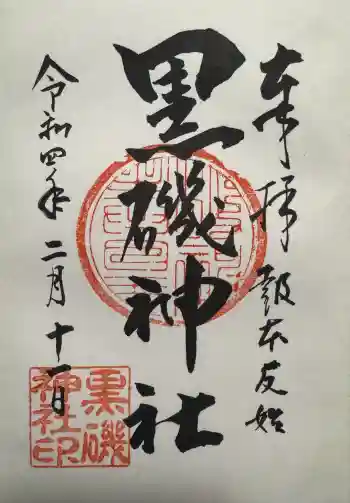 奉拝 報本反始
黒磯神社
令和四年 二月十一日
黒磯
神社印